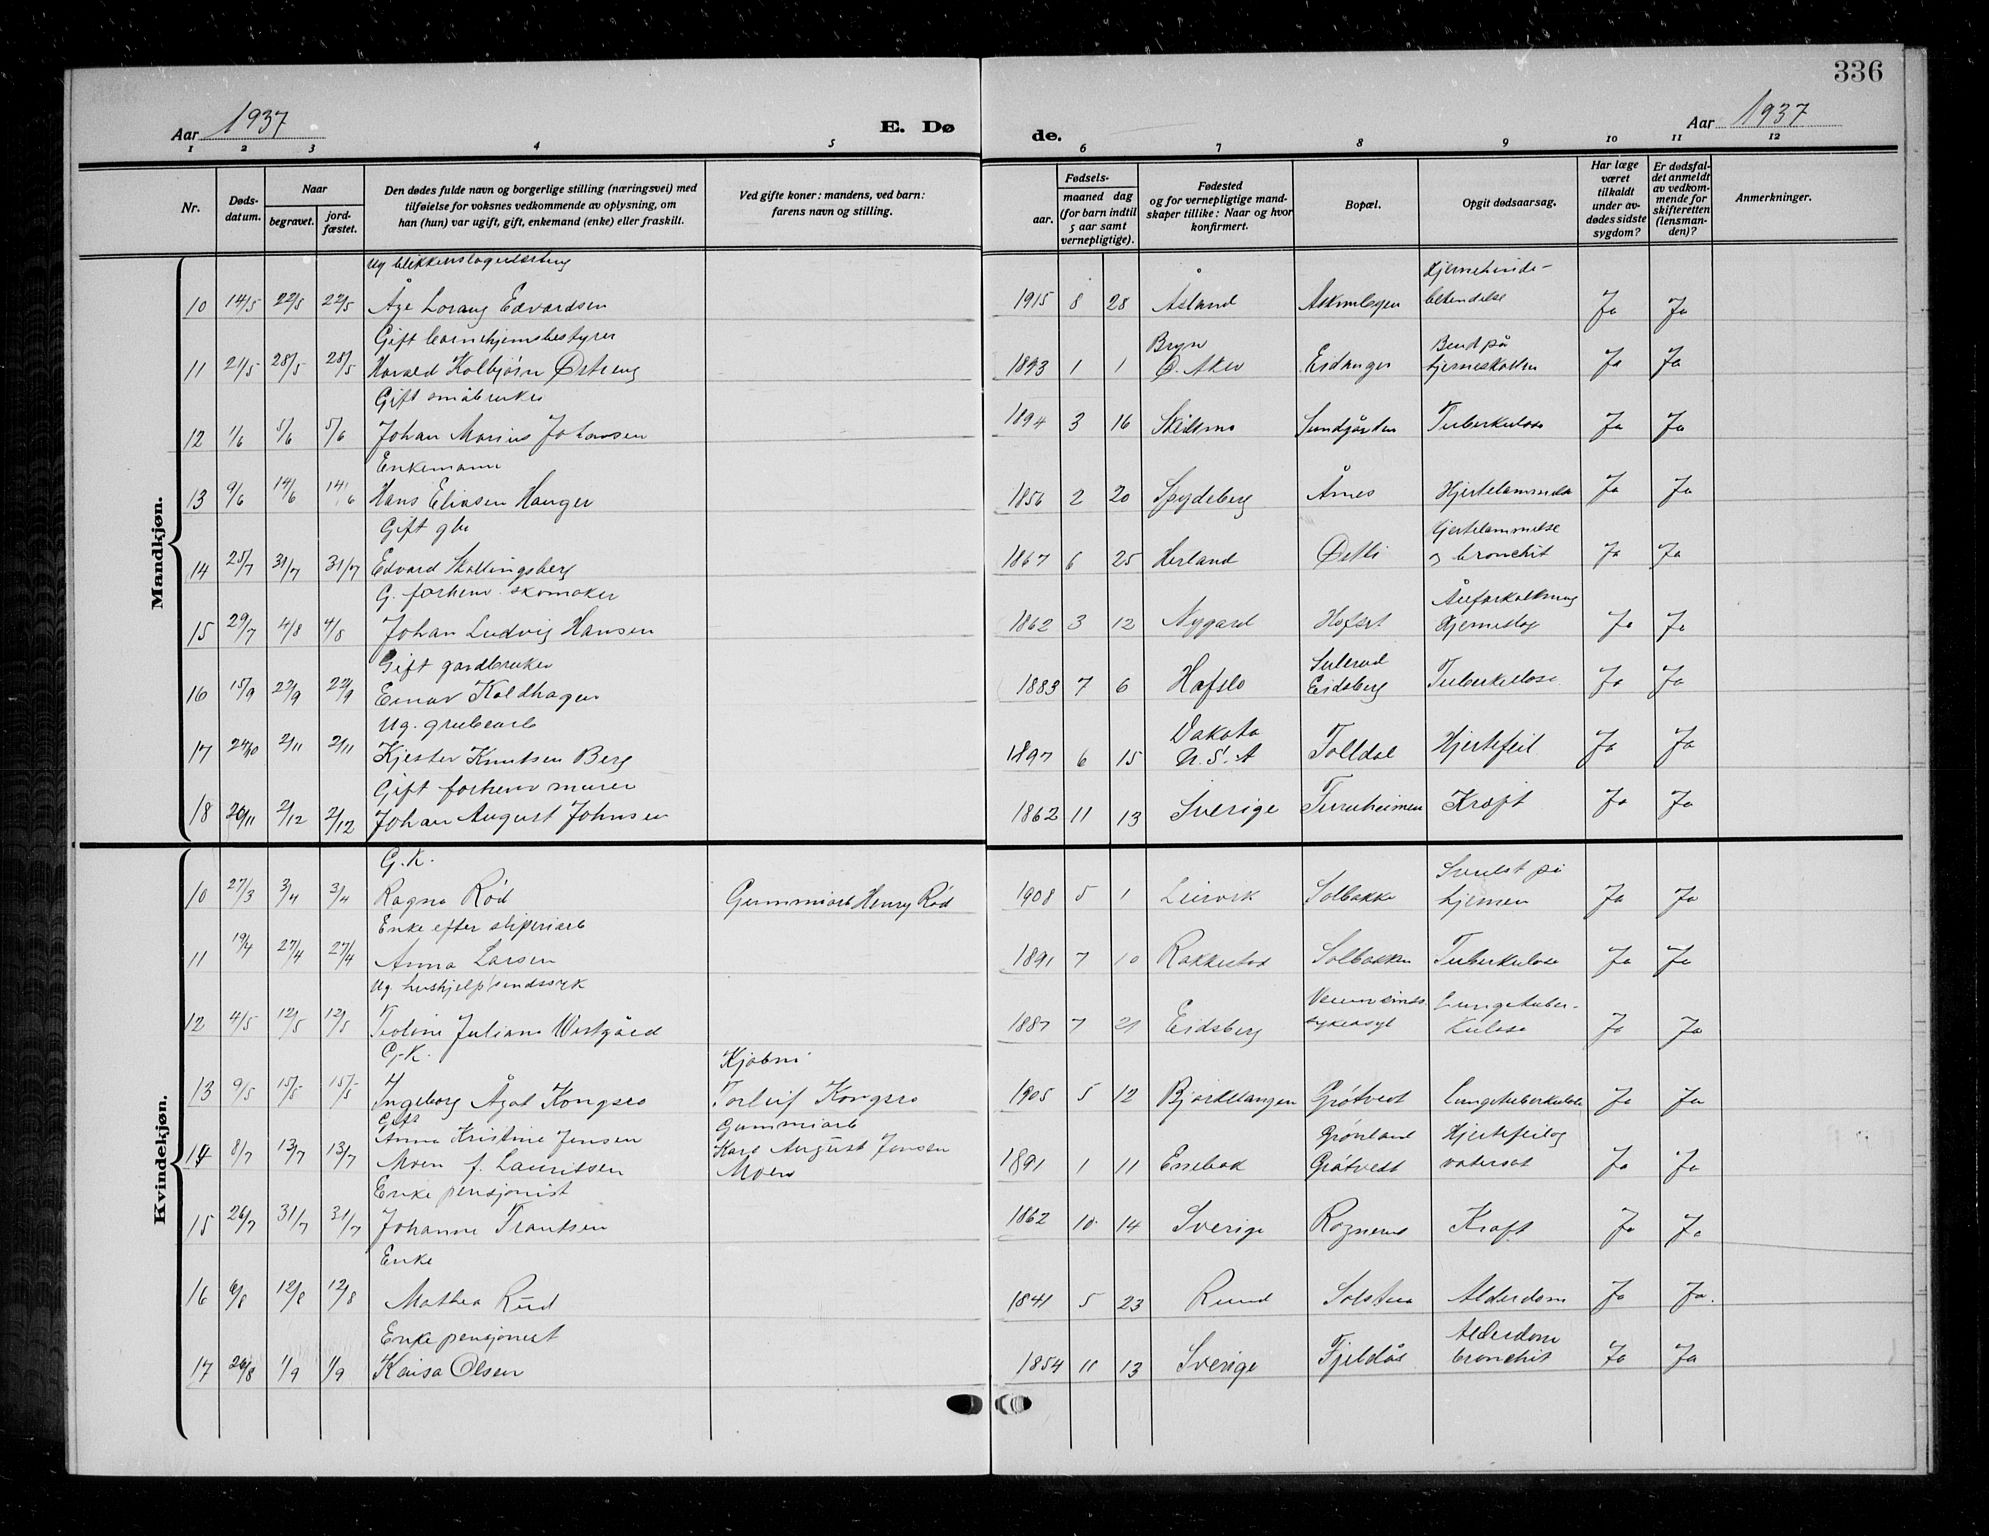 336
Aar 1937 E. Dø de. Aar 1937
1 2 3 4 5 6 7 8 9 10 11 12
Nr.
Døds-
datum.
Naar
begravet.
jord-
fæstet.
Den dødes fulde navn og borgerlige stilling (næringsvei) med
tilføielse for voksnes vedkommende av oplysning, om
han (hun) var ugift, gift, enkemand (enke) eller fraskilt.
Ved gifte koner: mandens, ved barn:
farens navn og stilling.
Fødsels-
aar.
maaned dag
(for barn indtil
5 aar samt
vernepligtige).
Fødested
og for vernepligtige mand-
skaper tillike: Naar og hvor
konfirmert.
Bopæl.
Opgit dødsaarsag.
Har læge
været
tilkaldt
under av-
dødes sidste
sygdom?
Er dødsfal-
det anmeldt
av vedkom-
mende for
skifteretten
(lensman-
den)?
Anmerkninger.
Mandkjøn.
Ug blikkenslagerlærling Hjernehinde-
10 14/5 22/5 22/5 Åge Lorang Edvardsen 1915 8 28 Åsland Askimbyen betendelse Ja Ja
Gift barnehjemsbestyrer Bryn Brud på
11 21/5 28/5 28/5 Harald Kolbjørn Østreng 1893 1 1 Ø. Aker Eidanger hjerneskallen Ja Ja
Gift småbruker
12 1/6 5/6 5/6 Johan Marius Johansen 1894 3 16 Skedsmo Sundgården Tuberkulose Ja Ja
Enkemann
13 9/6 14/6 14/6 Hans Eliasen Hauger 1856 2 20 Spydeberg Årnes Hjertelammelse Ja Ja
Gift gbr Hjertelammelse
14 25/7 31/7 31/7 Edvard Skallingsberg 1867 6 25 Herland Østli og bronchit Ja Ja
G. forhenv. skomaker Åreforkalkning
15 29/7 4/8 4/8 Johan Ludvig Hansen 1862 3 12 Nygard Hofset Hjerneslag Ja Ja
Gift gardbruker Sulerud
16 15/9 22/9 22/9 Einar Kaldhagen 1883 7 6 Hafslo Eidsberg Tuberkulose. Ja Ja
Ug. grubearb Dakota
17 24/10 2/11 2/11 Kjester Knutsen Berg 1897 6 15 U.S.A Folldal Hjertefeil Ja Ja
Gift forhenv murer
18 26/11 2/12 2/12 Johan August Johnsen 1862 11 13 Sverige Furuheimen Kræft Ja Ja
Kvindekjøn.
G.K. Svulst på
10 27/3 3/4 3/4 Ragna Rød Gummiarb Henry Rød 1908 5 1 Leirvik Solbakke hjernen Ja Ja
Enke efter sliperiarb
11 19/4 27/4 27/4 Anna Larsen 1891 7 10 Rakkestad Solbakken Tuberkulose Ja Ja
Ug. hushjelp sindssyk Lungetuber-
12 4/5 12/5 12/5 Teoline Juliane Vestgård 1887 7 21 Eidsberg sykeasyl kulose Ja Ja
G.K. Kjøbm
13 9/5 15/5 15/5 Ingeborg Ågot Kongsro Torleif Kongsro 1905 5 12 Bjørkelangen Grøtvedt Lungetuberkulose Ja Ja
Gift Gummiarb
Anna Kristine Jensen Karl August Jensen Grønlund Hjertefeil og
14 8/7 13/7 13/7 Moen f. Lauritsen Moen 1891 1 11 Enebak Grøtvedt vatersot Ja Ja
Enke pensjonist
15 26/7 31/7 31/7 Johanne Frantsen 1862 10 14 Sverige Rognerud Kraft Ja Ja
Enke
16 6/8 12/8 12/8 Mathea Rud 1841 5 23 Ruud Solstua Alderdom Ja Ja.
Enke pensjonist Alderdom
17 26/8 1/9 1/9 Kaisa Olsen 1854 11 13 Sverige Fjeldås bronchit Ja Ja